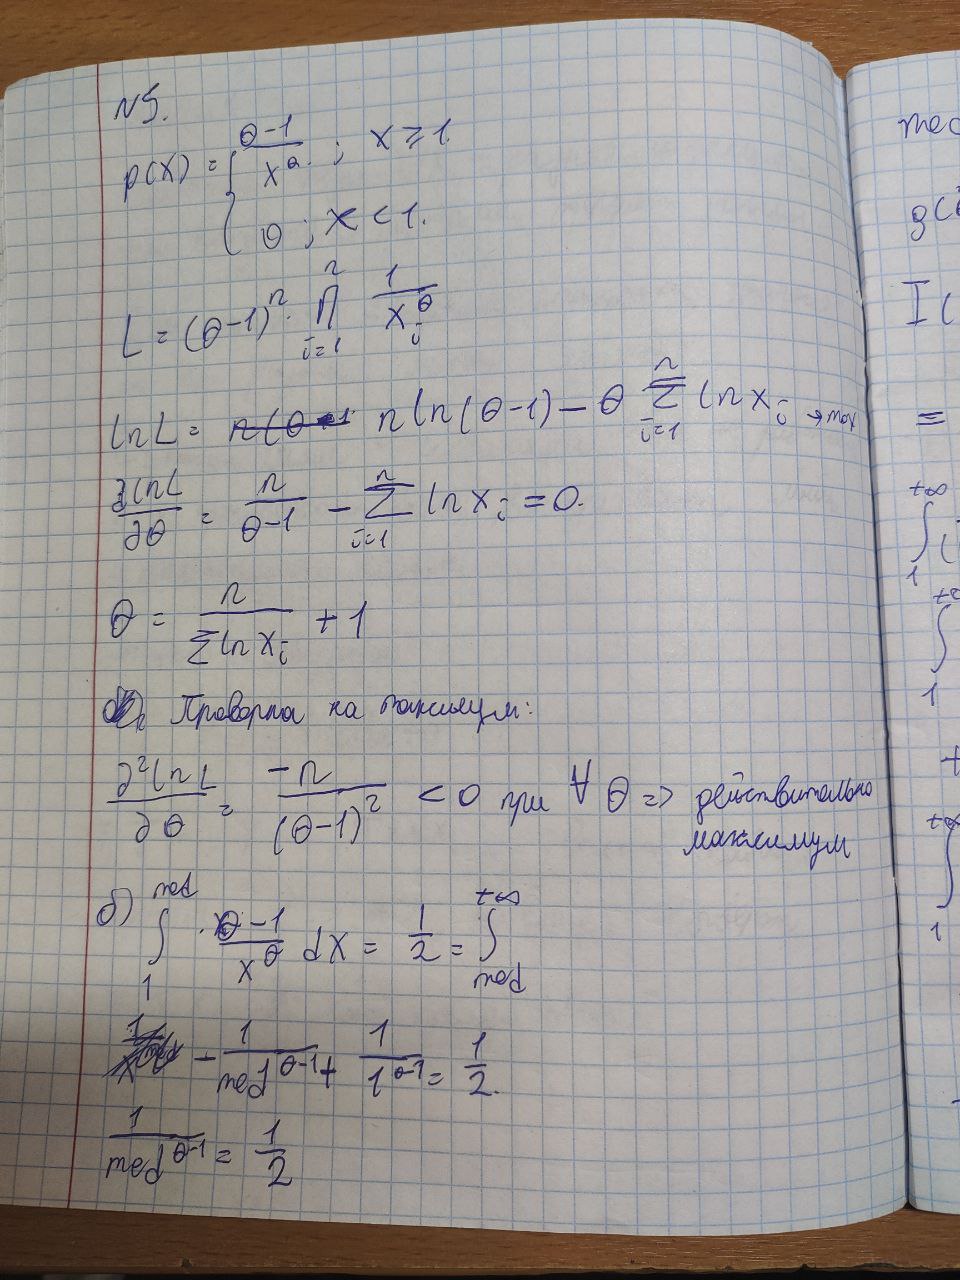 N5.
p(x) = { θ-1 / x^θ ; x ≥ 1
0 ; x < 1.
L = (θ-1)^n · ∏_{i=1}^{n} 1 / x_i^θ
ln L = n ln(θ-1) - θ ∑_{i=1}^{n} ln x_i → max
∂ln L / ∂θ = n / θ-1 - ∑_{i=1}^{n} ln x_i = 0.
θ = n / ∑ ln x_i + 1
Проверка на максимум:
∂² ln L / ∂θ = -n / (θ-1)² < 0 при ∀ θ => действительно
максимум
б) ∫_1^{med} θ-1 / x^θ dx = 1/2 = ∫_{med}^{+∞}
- 1 / med^{θ-1} + 1 / 1^{θ-1} = 1/2.
1 / med^{θ-1} = 1/2
med
I(
=
+∞
∫
1
+∞
∫
1
+∞
∫
1